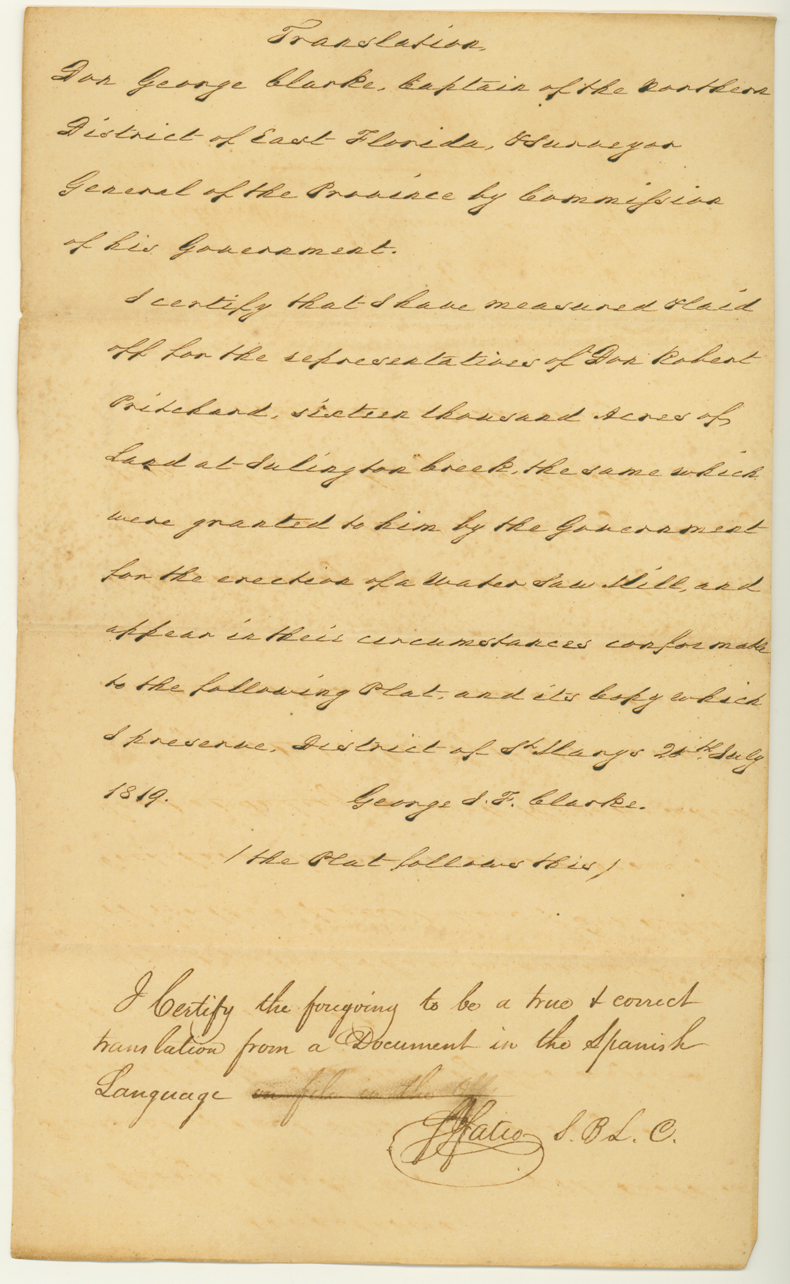 Translation.
Don George Clarke, Captain of the Northern
District of East Florida, & Surveyor
General of the Province by Commission
of his Government.
I certify that I have measured & laid
off for the representatives of Don Robert
Pritchard, sixteen thousand Acres of
Land at Julington Creek, the same which
were granted to him by the Government
for the erection of a Water Saw Mill, and
appear in their circumstances conformable
to the following Plat, and its Copy which
I preserve, District of St. Marys 20th. July
1819. George J. F. Clarke.
(the Plat follows this)
I Certify the foregoing to be a true & correct
translation from a Document in the Spanish
Language on file in the Off
S. B L. C.